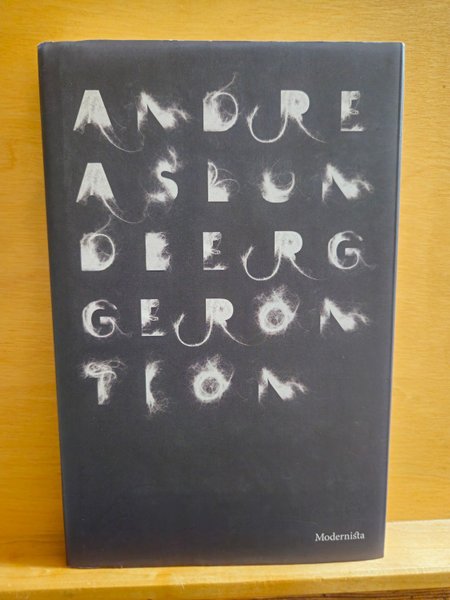 ANDRE
ASLUN
DBERG
GERON
TION
Modernista